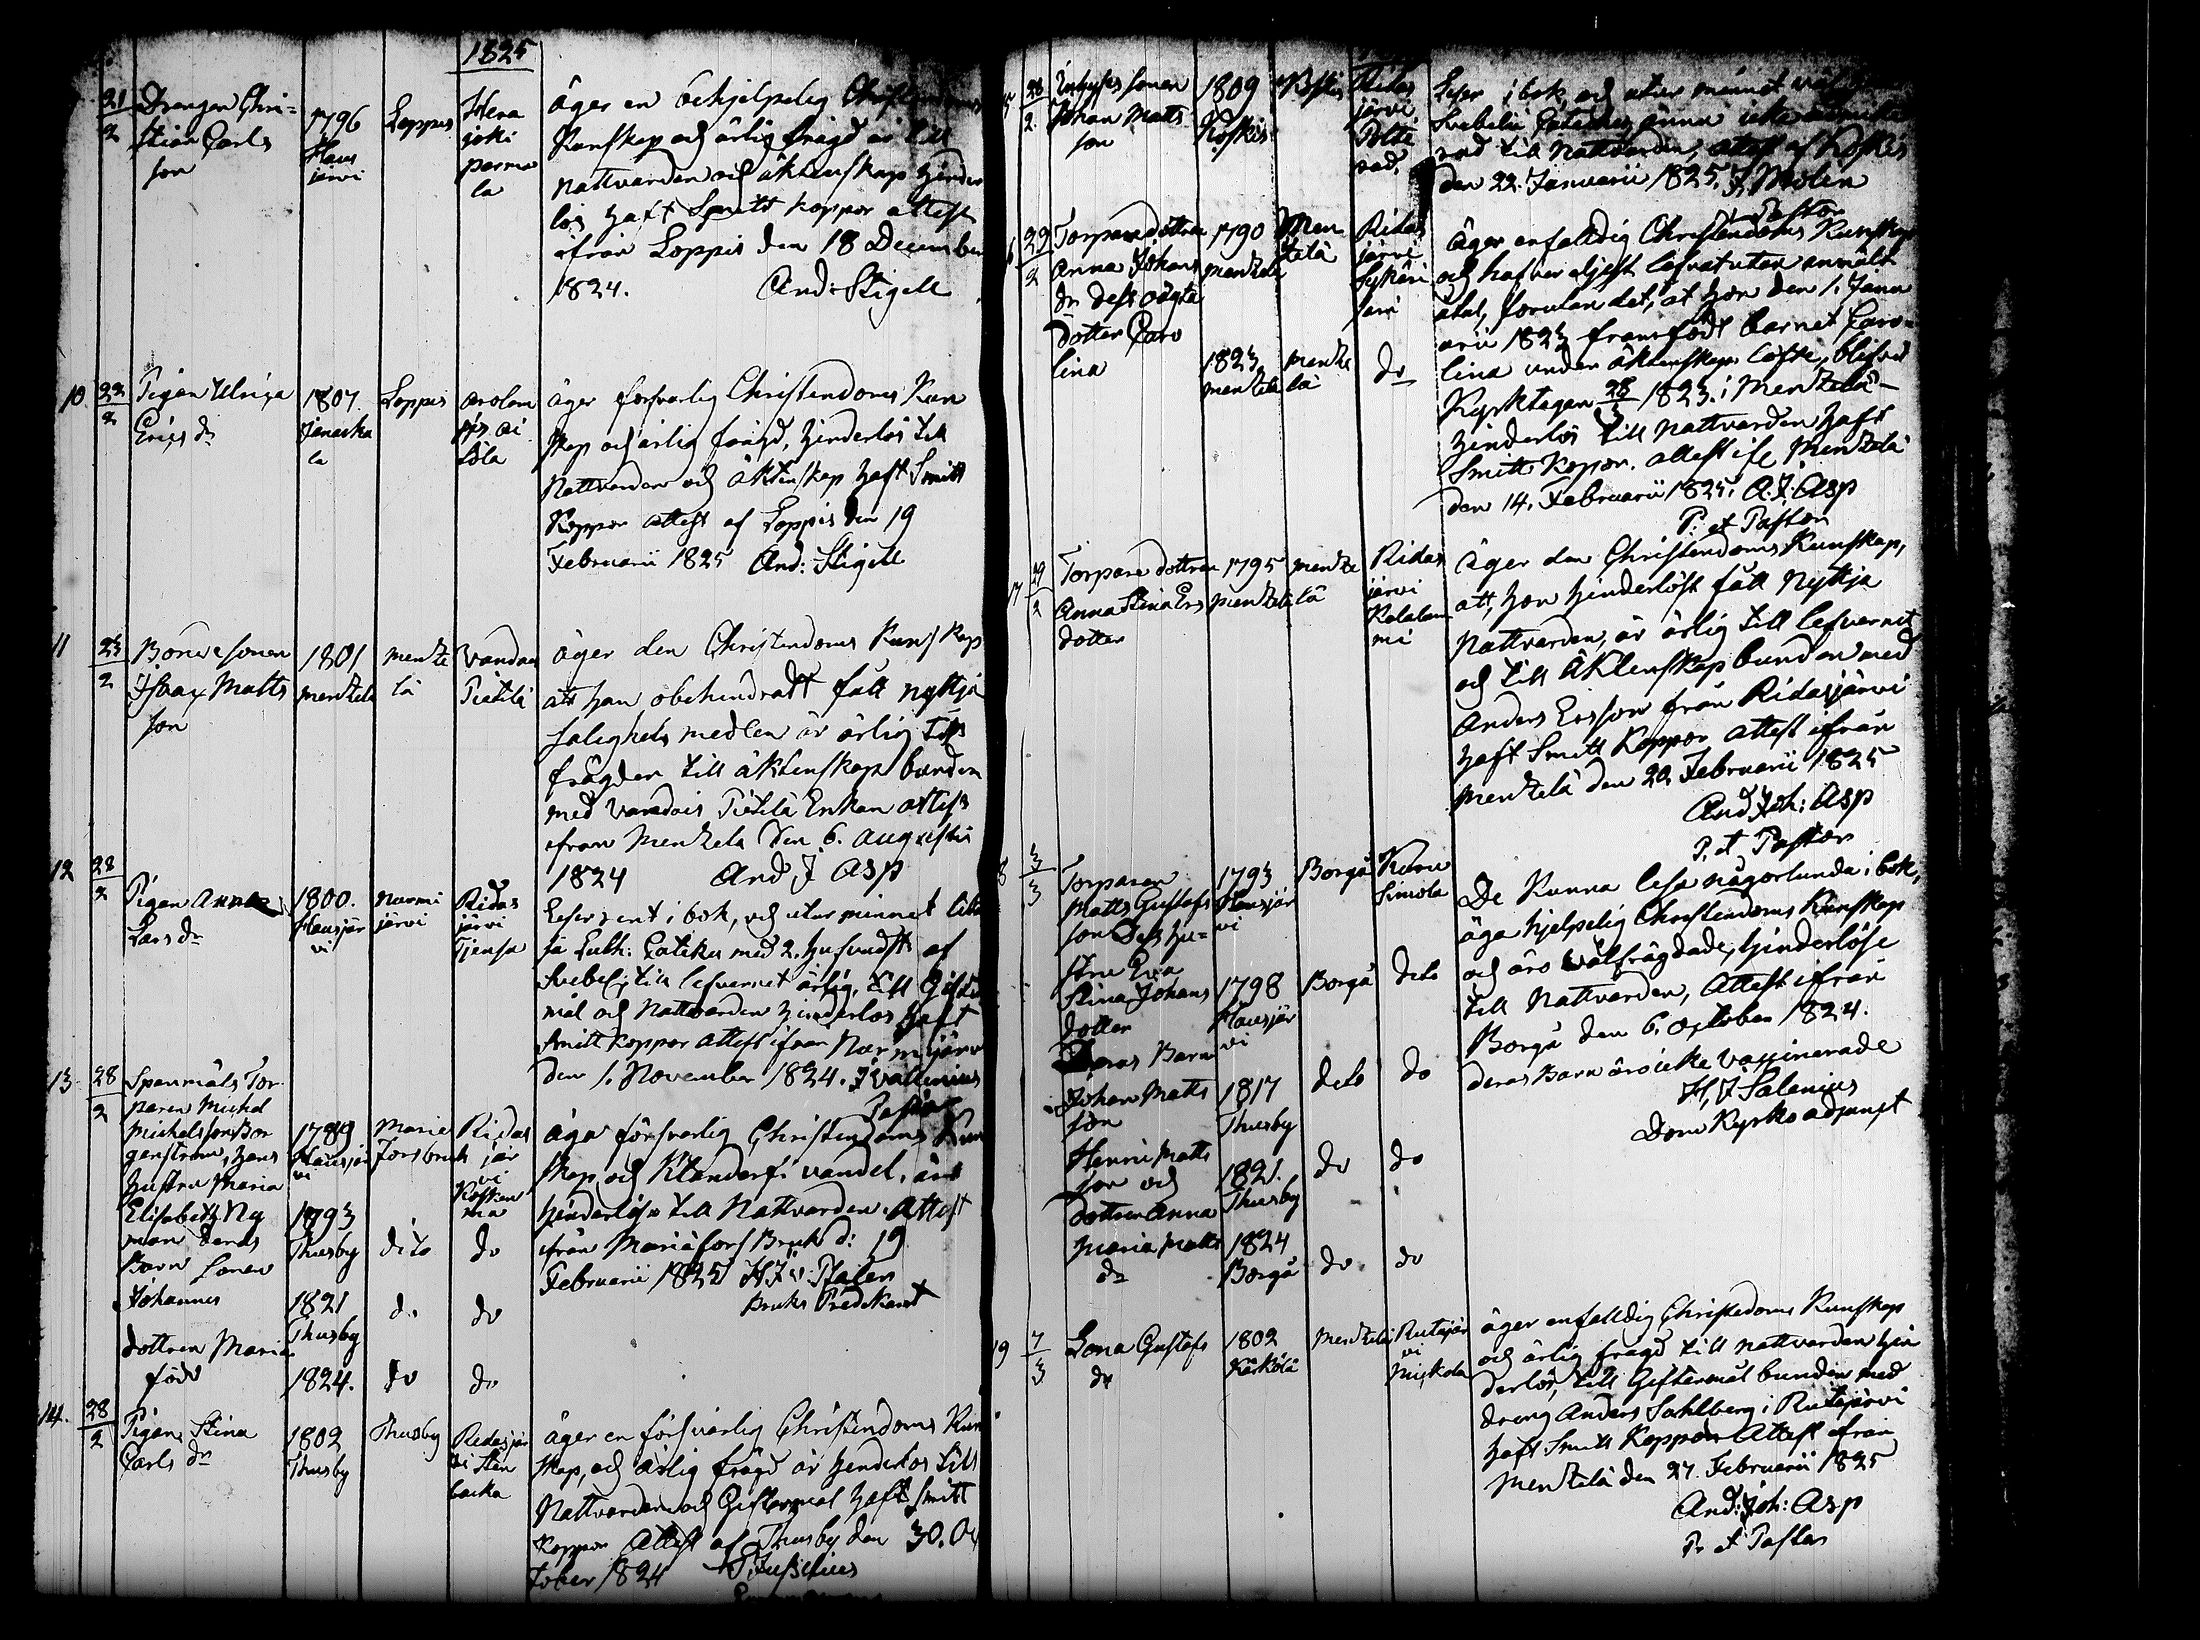 1825
21/2 Drengen Chri-
stian Carls
son
1796
Haus
järvi
Loppis
Hera
joki
parma
la
äger en behjelpelig Christendoms
Kunskap och ärlig frägd är till
Nattvarden och äktenskap hinder
lös haft Smitt koppor attest
ifrån Loppis den 18 December
1824. And: Stigell
10 22/2 Pigan Ulrica
Erics dr
1807.
Janacka
la
Loppis
äger försvarlig Christendoms Kun
skap och ärlig frägd, hinderlös till
Nattvarden och äktenskap haft Smitt
Koppor attest af Loppis den 19
Februarii 1825 And: Stigell
11 23/2 Bonde sonen
Isaac Matts
son
1801
Mentzelä
Mentze
lä
Vandais
Pietilä
äger den Christendoms Kunskap
att han obehindradt fått nyttja
salighets medlen är ärlig till
frägden till äktenskap bunden
med Vandais Pietilä Enkan attest
ifrån Mentzelä den 6. Augusti
1824 And J Asp
12 28/2
Pigan Anna
Lars dr
1800.
Hausjär
vi
Nurmi
järvi
Ridas
järvi
Läser rent i bok, och utur minnet lilla
Luth: Cateches med 2. hufvudst af
Svebel; till lefvernet ärlig, till Gifter
mål och Nattvarden hinderlös haft
Smitt koppor attest ifrån Nurmijärvi
den 1. November 1824. J Wallenius
Pastor
13 28/2 Spanmåls Tor
paren Michel
Michelsson Bor
genström, hans
hustru Maria
Elisabeth Ny
man deras
Barn Sonen
Johannes
dottren Maria
född
1789
Hausjär
vi
1793
Thusby
1821
Thusby
1824.
Marie
forsbruk
dito
do
do
Ridas
jär
vi
Kosken
maa
do
do
do
äga försvarlig Christendoms Kun
skap och Klanderfri vandel, äro
hinderlöse till Nattvarden. Attest
ifrån Mariæfors Bruk d: 19
Februarii 1825 H. J. v: Pfaler
Bruks Predikant
14. 28/2 Pigan Stina
Carls dr
1802
Thusby
Thusby
Ridasjär
vi Sten
backa
äger en försvarlig Christendoms Kun
skap, och ärlig frägd är hinderlös till
Nattvarden och Giftermål haft Smitt
koppor Attest af Thusby den 30. Oc
tober 1824
28/2 sonen
Johan Matts
son
1809
Koskis
Koskis
Ridas
järvi
Läser i bok och utur minnet
Svebelii Cateches, ännu icke
rad till Nattvarden, attest af Koskis
den 22. Januarii 1825. J. Molin
Pastor
29/2 Torpare dottren
Anna Johans
dr dess oägta
dotter Caro
lina
1790
Mentzelä
1823
Mentzelä
Men
tzelä
Mentze
lä
Ridas
järvi
do
äger enfaldig Christendoms Kunskap
och hafver eljest lefvat utan anmält
åtal, förutan det, at hon den 1. Janu
arii 1823 framfödt barnet Caro-
lina under äktenskaps löfte, blifvit
Kyrktagen 28/3 1823. i Mentzelä
hinderlös till Nattvarden haft
Smitt koppor. attest if Mentzelä
den 14. Februarii 1825. A. J. Asp
P: et Pastor
17 29/2 Torpare dottren
Anna Stina Ers
dotter
1795
Mentzelä
Mentze
lä
Ridas
järvi
Kalalam
mi
äger den Christendoms Kunskap,
att, hon hinderlöst fått nyttja
Nattvarden, är ärlig till lefvernet
och till äktenskap bunden med
Anders Ersson från Ridasjärvi
haft Smitt koppor attest ifrån
Mentzelä den 22 Februarii 1825
And: Joh: Asp
P. et Pastor
18 3/3 Torparen
Matts Gustafs
son Dess hu-
stru Eva
Stina Johans
dotter
Deras Barn
Johan Matts
son
Henric Matts
son och
dottren Anna
Maria Matts
dr
1793
Hausjär
vi
1798
Hausjär
vi
1817
Thusby
1821.
Thusby
1824
Borgå
Borgå
Borgå
dito
do
do
Karu
Simola
dito
do
do
do
De kunna läsa någorlunda i bok,
äga hjelpelig Christendoms Kunskap
och äro välfrägdade, hinderlöse
till Nattvarden, Attest ifrån
Borgå den 6. October 1824.
deras Barn äro icke vaccinerade
H. J. Salenius
Dom Kyrko adjunct
19 7/3 Lena Gustafs
dr
1802
Kärkölä
Mentzelä
Rutajär
vi
äger enfaldig Christendoms Kunskap
och ärlig frägd till Nattvarden hin
derlös, till Giftermål bunden med
dreng Anders Sahlberg i Rutajärvi
haft Smitt koppor Attest ifrån
Mentzelä den 27. Februarii 1825
And: Joh: Asp
P. et Pastor